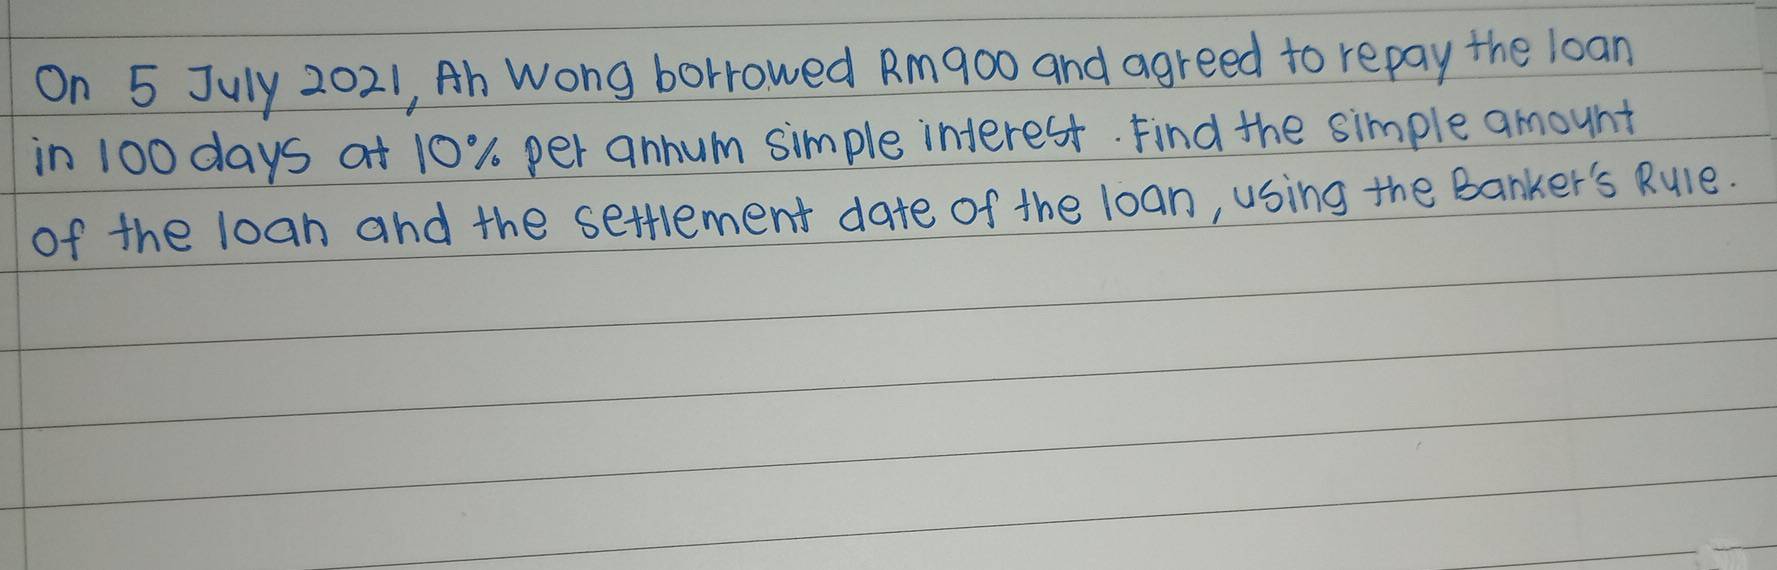 On 5 July 2021, Ah Wong borrowed RM900 and agreed to repay the loan
in 100 days at 10% per annum simple interest. Find the simple amount
of the loan and the settlement date of the loan, using the Banker's Rule.